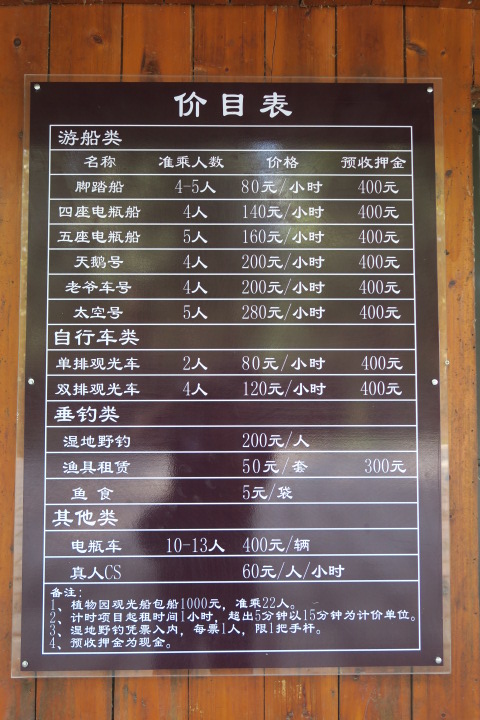 价目表
游船类
名称 准乘人数 价格 预收押金
脚踏船 4-5人 80元/小时 400元
四座电瓶船 4人 140元/小时 400元
五座电瓶船 5人 160元/小时 400元
天鹅号 4人 200元/小时 400元
老爷车号 4人 200元/小时 400元
太空号 5人 280元/小时 400元
自行车类
单排观光车 2人 80元/小时 400元
双排观光车 4人 120元/小时 400元
垂钓类
湿地野钓 200元/人
渔具租赁 50元/套 300元
鱼食 5元/袋
其他类
电瓶车 10-13人 400元/辆
真人CS 60元/人/小时
备注:
1、植物园观光船包船1000元，准乘22人。
2、计时项目起租时间1小时，超出5分钟以15分钟为计价单位。
3、湿地野钓凭票入内，每票1人，限1把手杆。
4、预收押金为现金。